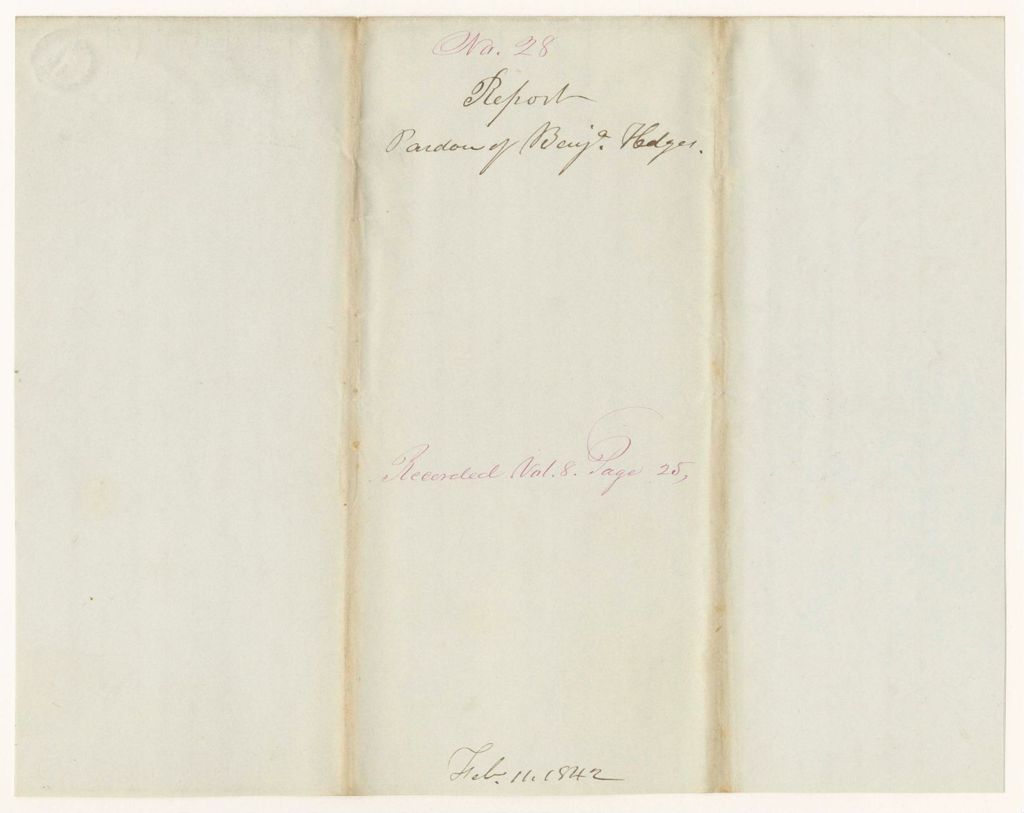 No. 28
Report
Pardon of Benja. Hedges.
Recorded Vol. 8. Page 25,
Feb. 11. 1842